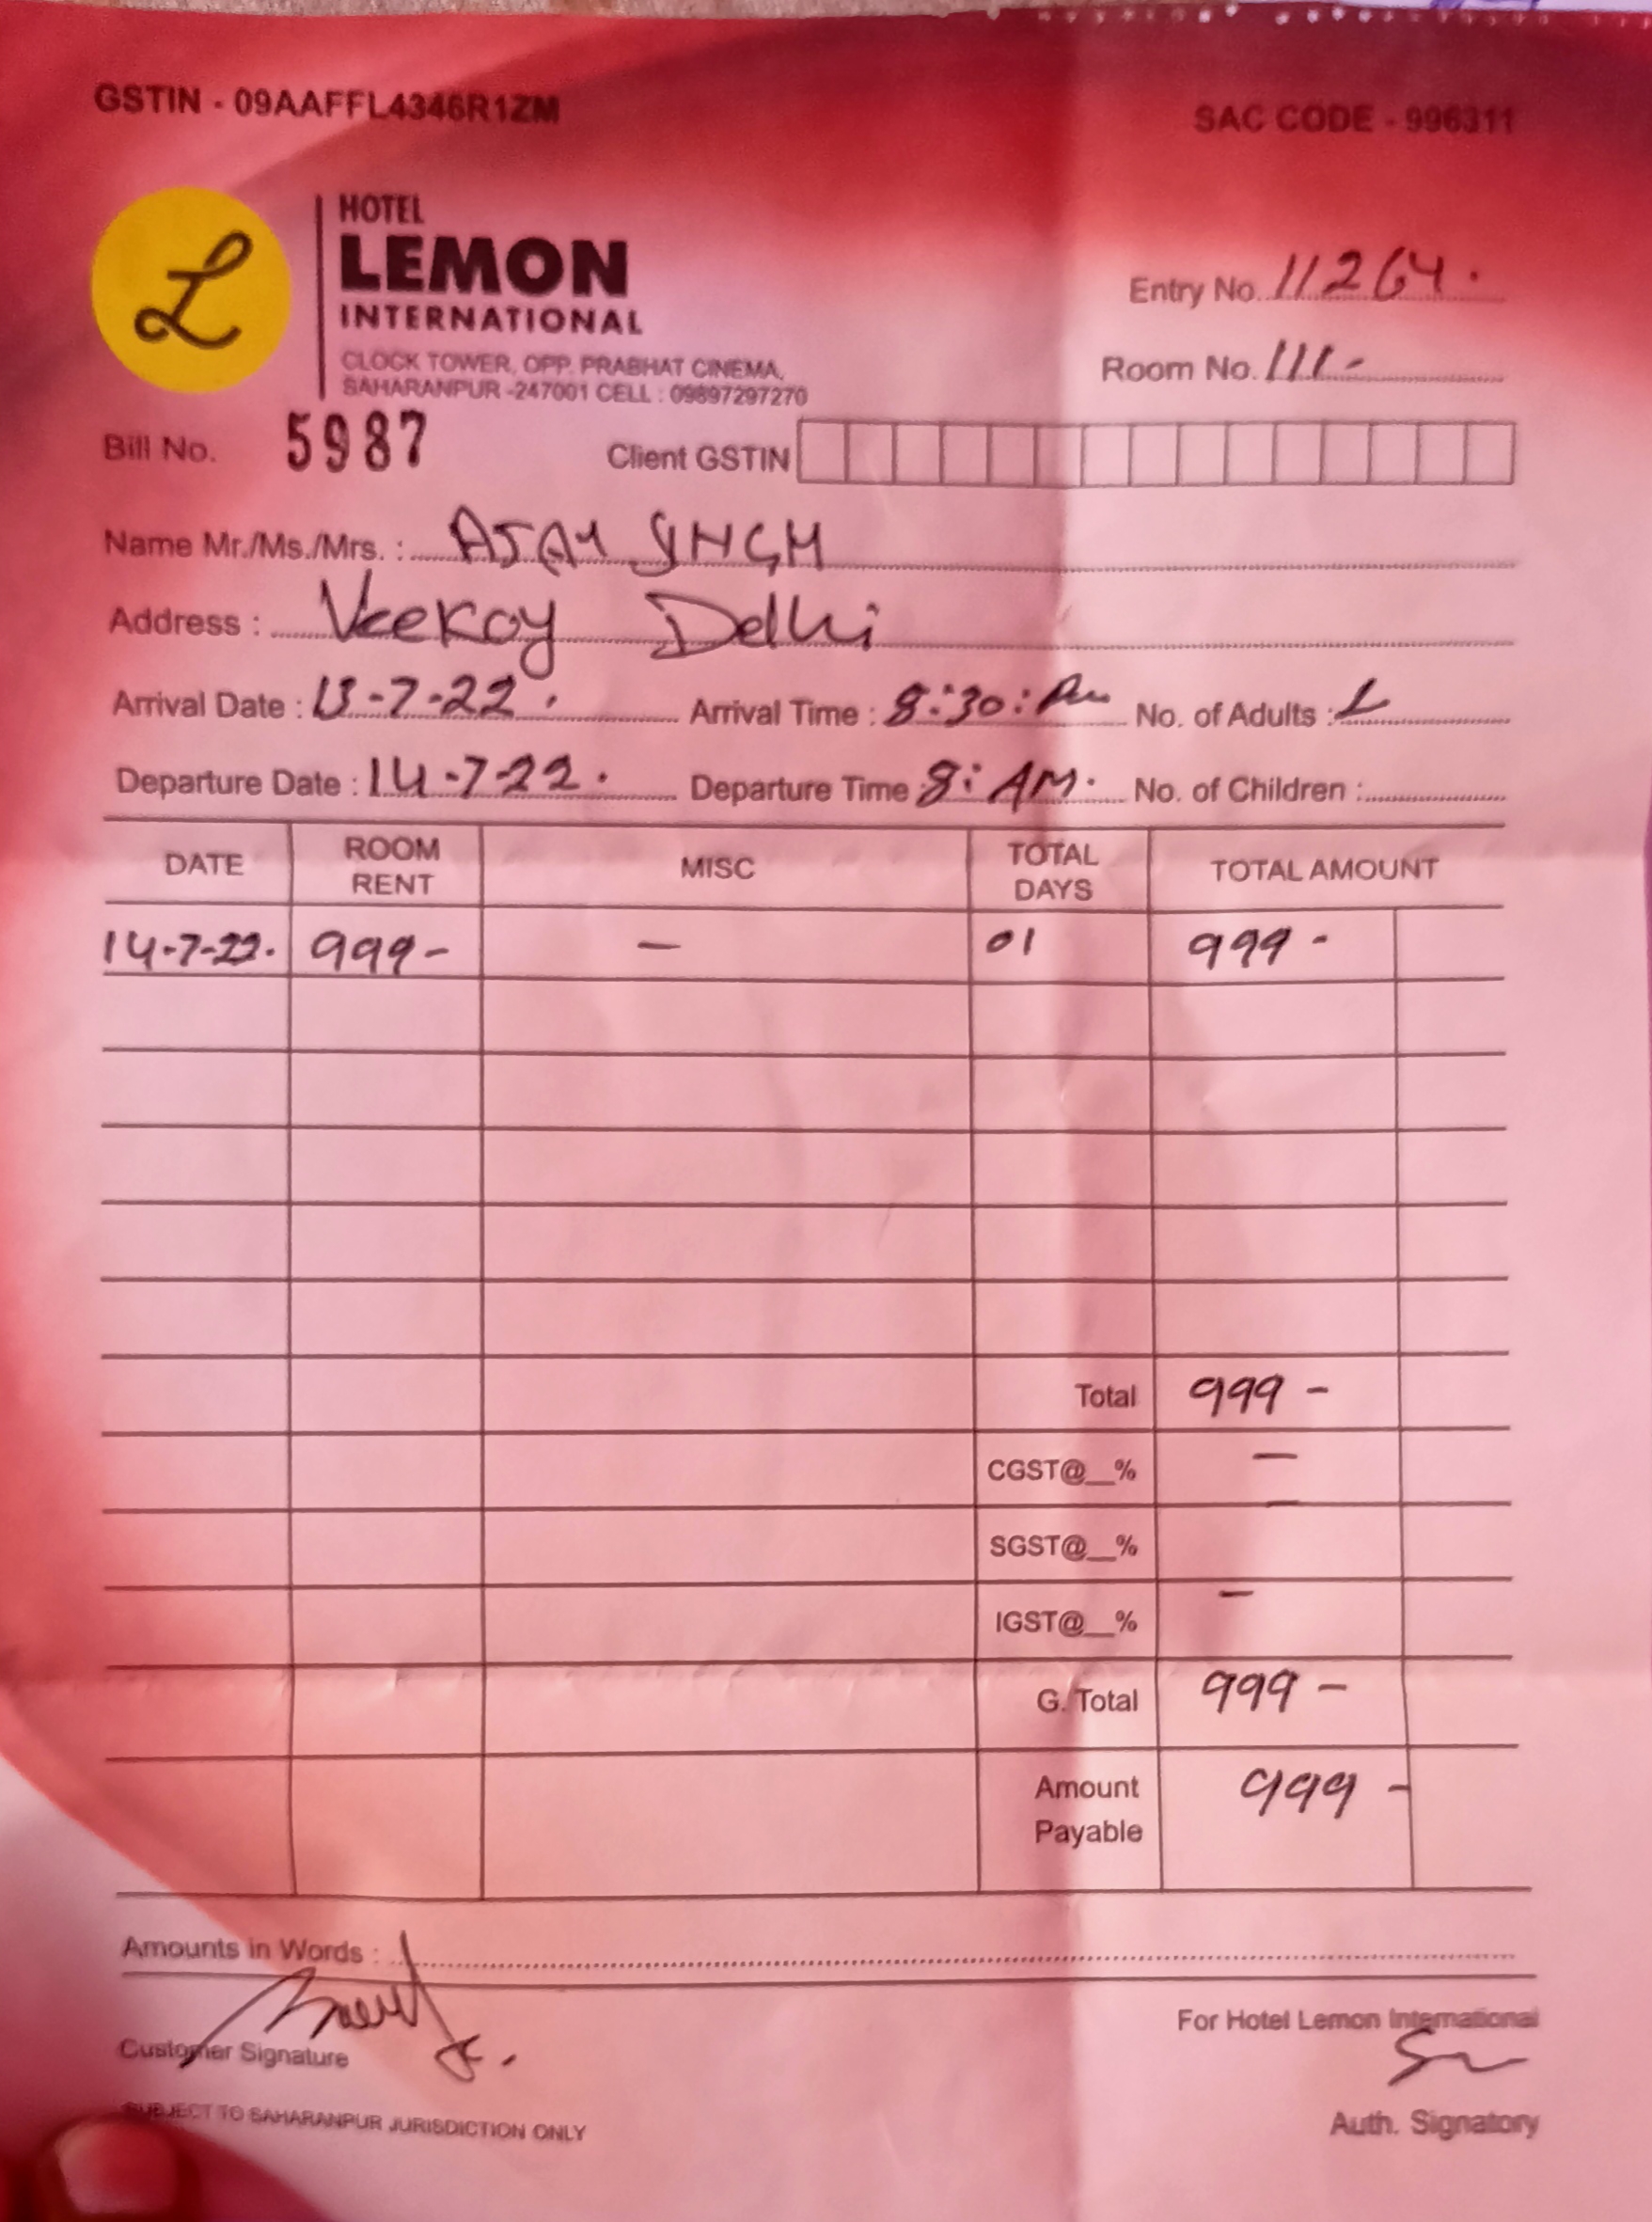 GSTIN - 09AAFFL4346R1ZM SAC CODE - 996311
L
HOTEL
LEMON
INTERNATIONAL
CLOCK TOWER, OPP. PRABHAT CINEMA,
SAHARANPUR -247001 CELL : 09897297270
Entry No. 11264.
Room No. 111-
Bill No. 5987 Client GSTIN
Name Mr./Ms./Mrs. : AJAY SINGH
Address : Veekay Delhi
Arrival Date : 13-7-22. Arrival Time : 8:30: No. of Adults : 1
Departure Date : 14-7-22. Departure Time 8: AM. No. of Children :
DATE ROOM RENT MISC TOTAL DAYS TOTAL AMOUNT
14-7-22. 999- — 01 999 -
Total 999 -
CGST@__% —
SGST@__% —
IGST@__% —
G. Total 999 -
Amount Payable 999 -
Amounts in Words :
Customer Signature
For Hotel Lemon International
SUBJECT TO SAHARANPUR JURISDICTION ONLY
Auth. Signatory